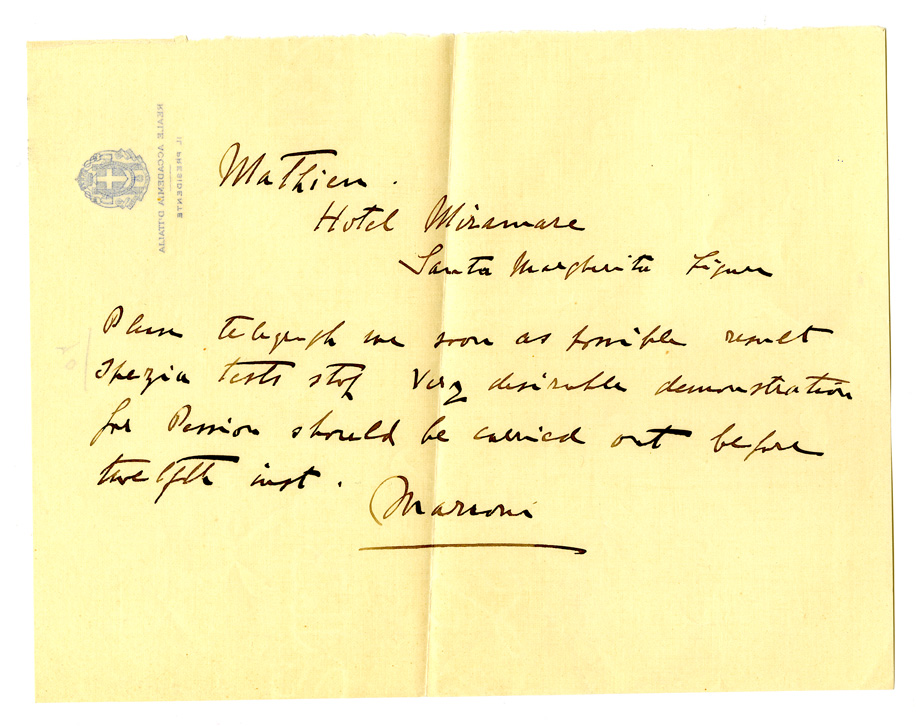 REALE ACCADEMIA D'ITALIA
IL PRESIDENTE
Mathieu.
Hotel Miramare
Santa Margherita Ligure
Please telegraph me soon as possible result
Spezia tests stop Very desirable demonstration
for Pession should be carried out before
twelfth inst.
Marconi